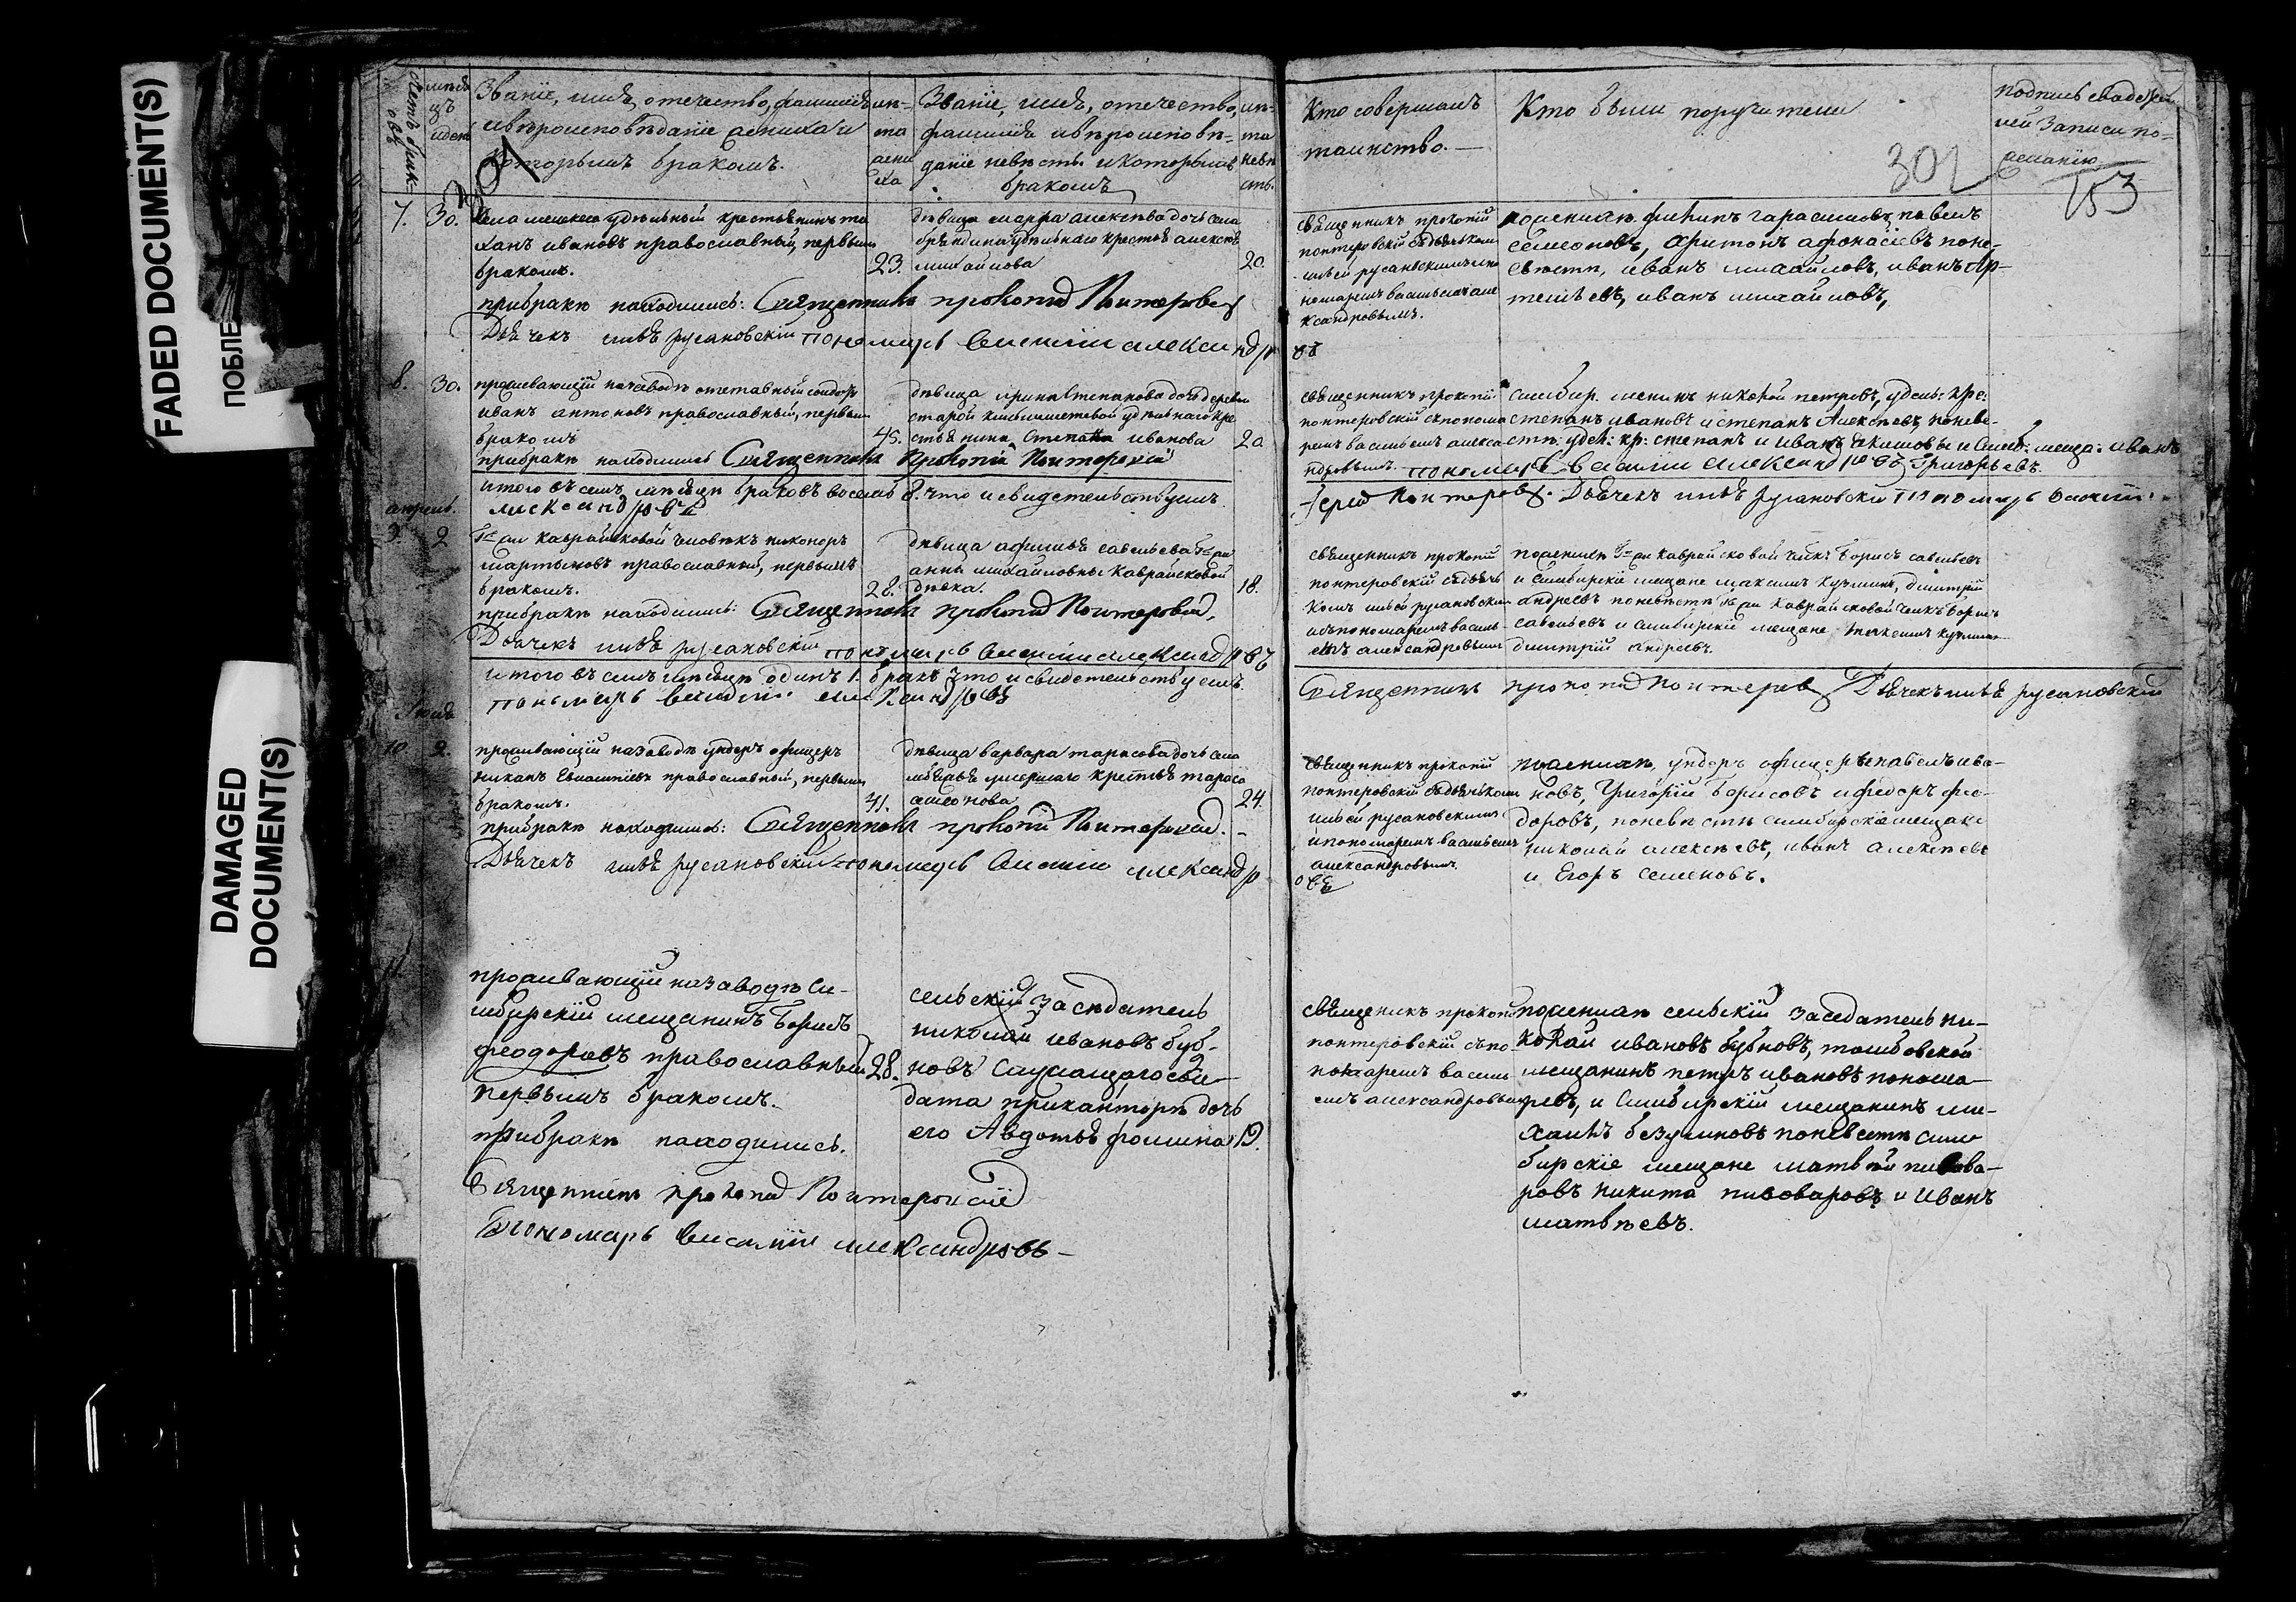 FADED DOCUMENT(S)
ПОБЛЕ
DAMAGED
DOCUMENT(S)
Званіе, имя, отечество, фамилія
и вѣроисповѣданіе жениха и
которымъ бракомъ.
лѣ-
та
жени
ха
Званіе, имя, отечество,
фамилія и вѣроисповѣ-
даніе невѣсты и которымъ
бракомъ
лѣ-
та
невѣ
сты.
Кто совершалъ
таинство.
Кто были поручители
301
302
153
7. 30.
удѣльный крестьянинъ
ивановъ православный, первымъ
бракомъ.
23.
дѣвица марфа алексѣева дочь села
удѣльнаго алексѣя
михайлова
20.
священникъ прокопій
понтеровскій
по женихѣ гарасимовъ, павелъ
семеоновъ, афонасіевъ по не-
вѣсти, иванъ михайловъ, иванъ ар-
темьевъ, иванъ михайловъ,
при бракѣ находились: Священникъ прокопій Понтеровскій
Дьячекъ илья русановскій пономарь василій александр
овъ
8. 30.
проживающій на заводѣ отставный солдатъ
иванъ антоновъ православный, первымъ
бракомъ
45.
дѣвица ирина степанова дочь деревни
старой удѣльнаго кре
стьянина степана иванова
20
священникъ прокопій
понтеровскій съ понома
ремъ васильемъ алекса
ндровымъ.
петровъ, удѣль: кре:
степанъ ивановъ и степанъ Алексѣевъ, по неве-
сти: удел: кр: степанъ и иванъ акимовы и Симб: меща: иванъ
Григорьевъ.
при бракѣ находились Священникъ Прокопій Понтеровскій
пономарь василіи александровъ
итого въ семъ мѣсяцѣ браковъ восемь 8. что и свидетельствуемъ
Дьячекъ илья русановскій пономарь василій
александровъ
апрель.
9. 2
каврайсковой человѣкъ никоноръ
мартыновъ православный, первымъ
бракомъ.
28.
дѣвица афимья савельева
анны михайловны Каврайсковой
дѣвка.
18.
священникъ прокопій
понтеровскій съ дьяч
комъ ильей русановским
и съ пономаремъ василь-
емъ александровымъ
по женихѣ каврайсковой борисъ савельевъ
и Симбирскіе мещане максимъ кузминъ, димитрій
андреевъ по невѣсти каврайсковой борисъ
савельевъ и симбирскіе мещане максимъ кузминъ
димитрій андреевъ.
при бракѣ находились: Священникъ прокопій Понтеровскій,
Дьячекъ илья русановскій пономарь василій александровъ
итого въ семъ мѣсяцѣ одинъ 1. бракъ что и свидетельствуемъ.
Священникъ прокопій Понтеровскій Дьячекъ илья русановскій
пономарь василій александровъ
10 2.
проживающій на заводѣ ундеръ офицеръ
православный, первымъ
бракомъ.
41.
дѣвица варвара тарасова дочь села
умершаго тараса
24.
священникъ прокопій
понтеровскій съ дьячкомъ
ильей русановскимъ
и пономаремъ васильемъ
александровымъ
по женихѣ, ундеръ офицеръ павелъ ива-
новъ, Григорій Борисовъ и федоръ фео-
доровъ, по невѣстѣ симбирскіе мещане
николай алексѣевъ, иванъ алексѣевъ
и Егоръ семеновъ.
при бракѣ находились: Священникъ прокопій Понтеровскій.
Дьячекъ илья русановскій пономарь василій александр
овъ
11
проживающій на заводѣ Си-
мбирскій мещанинъ Борисъ
феодоровъ православный
первымъ бракомъ.
28.
сельскій заседатель
николай ивановъ буб-
новъ служащаго сол-
дата при канторѣ дочь
его Авдотья фомина
19.
священикъ прокопій
понтеровскій съ по-
номаремъ василь
емъ александровым
по женихѣ сельскій заседатель ни-
колай ивановъ бубновъ, тамбовской
мещанинъ петръ ивановъ понома-
ревъ, и Симбирскій мещанинъ ми-
хаилъ безумновъ по невести сим
бирскіе мещане матвѣй пивова-
ровъ никита пивоваровъ и Иванъ
матвѣевъ.
при бракѣ находились.
Священникъ Прокопій Понтеровскій
Пономарь василій александровъ